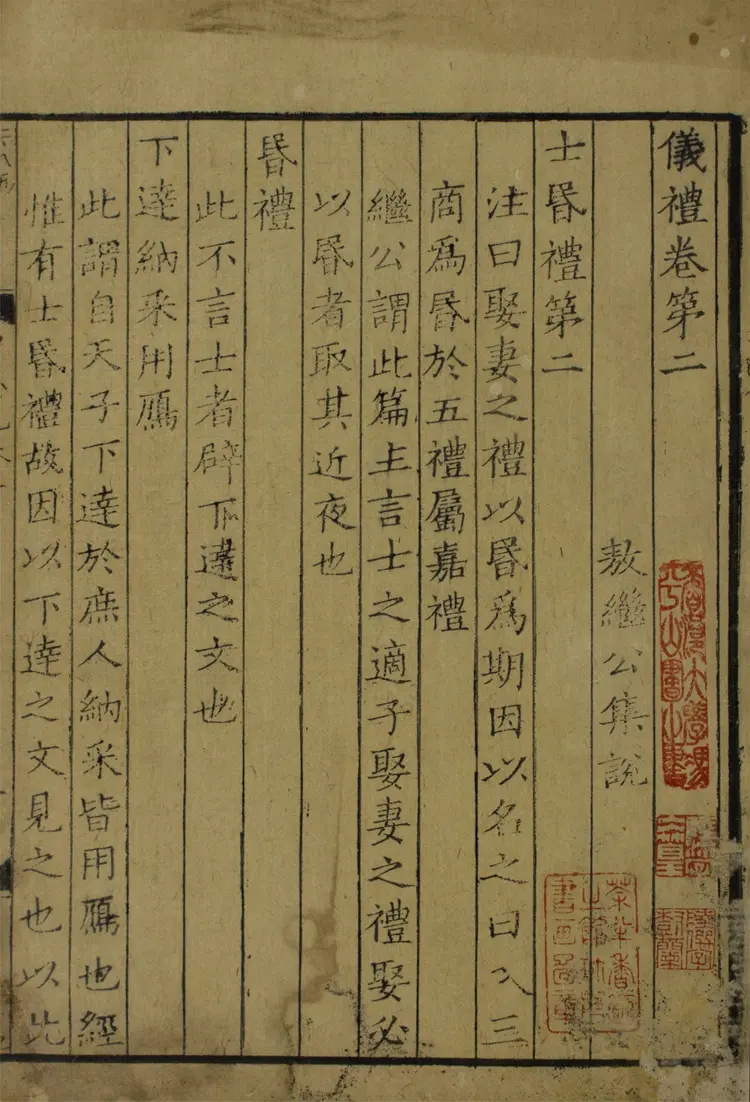 儀禮卷第二
敖繼公集說
士昬禮第二
注曰娶妻之禮以昬爲期因以名之曰入三
商爲昬於五禮屬嘉禮
繼公謂此篇主言士之適子娶妻之禮娶必
以昬者取其近夜也
昬禮
此不言士者辟下達之文也
下達納采用鴈
此謂自天子下達於庶人納采皆用鴈也經
惟有士昬禮故因以下達之文見之也以此